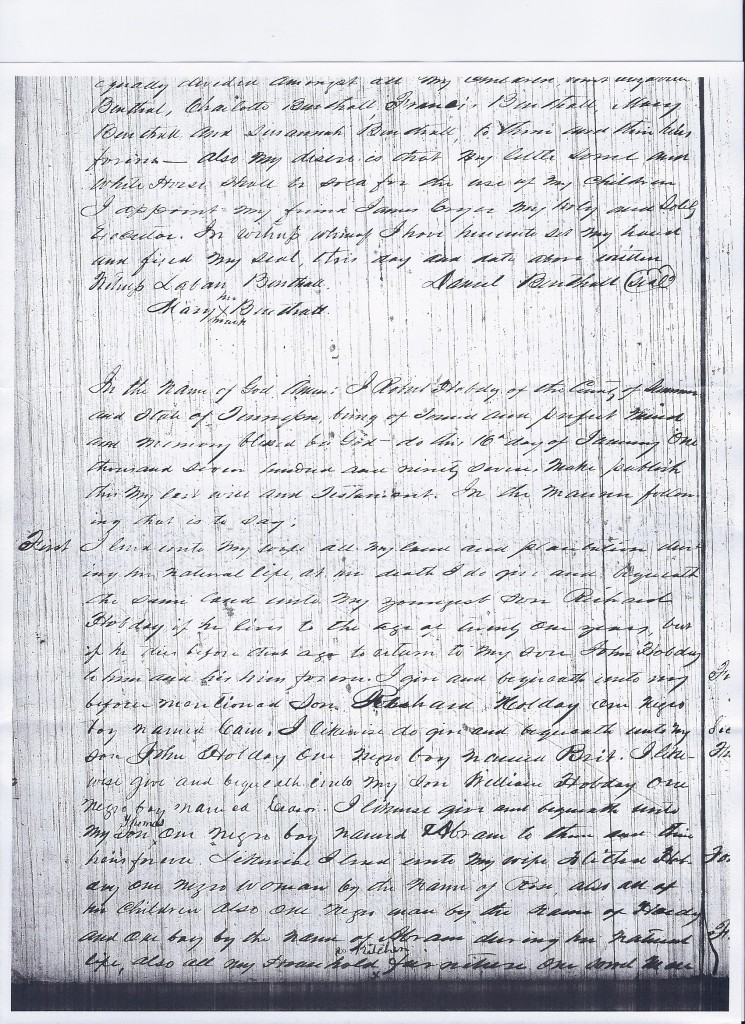 equally divided amongst all my children
Benthal, Charlotte Benthall, Francis Benthall, Mary
Benthall and Susannah Benthall, to them and their heirs
forever — also my desire is that my little sorrel and
White Horse Shall be sold for the use of my Children
I appoint my friend James Cryer my holy and Solly
Executor. In witness whereof I have hereunto set my hand
and fixed my seal, this day and date above written
Witness Laban Benthall. Daniel Benthall (seal)
Mary her X mark Benthall
In the Name of God Amen: I Robert Hobdy of the County of Sumner
and State of Tennessee, being of Sound and perfect Mind
and Memory blessed be God — do this 16th day of January One
thousand seven hundred and ninety seven, Make publish
this My last will and Testament. In the Manner follow-
ing that is to say;
First I lend unto My wife all My land and plantation dur-
ing her natural life, at her death I do give and bequeath
the same land unto My youngest Son Richard
Hobday if he lives to the age of twenty one years, but
if he dies before that age to return to My son John Hobday
to him and his heirs forever. I give and bequeath unto my
before mentioned Son Richard Hobday one Negro
boy named Cain. I likewise do give and bequeath unto My
son John Hobday One Negro boy named Brit. I like-
wise give and bequeath unto My Son William Hobday one
Negro boy named I likewise give and bequeath unto
My Son Thomas One Negro boy named Abram to them and their
heirs forever. Likewise I lend unto My wife Hob-
day one Negro Woman by the Name of Rose, also all of
her Children also One Negro man by the Name of Hardy
and One boy by the Name of Abram during her natural
life, also all My Household & Kitchen furniture One sorrel Mare